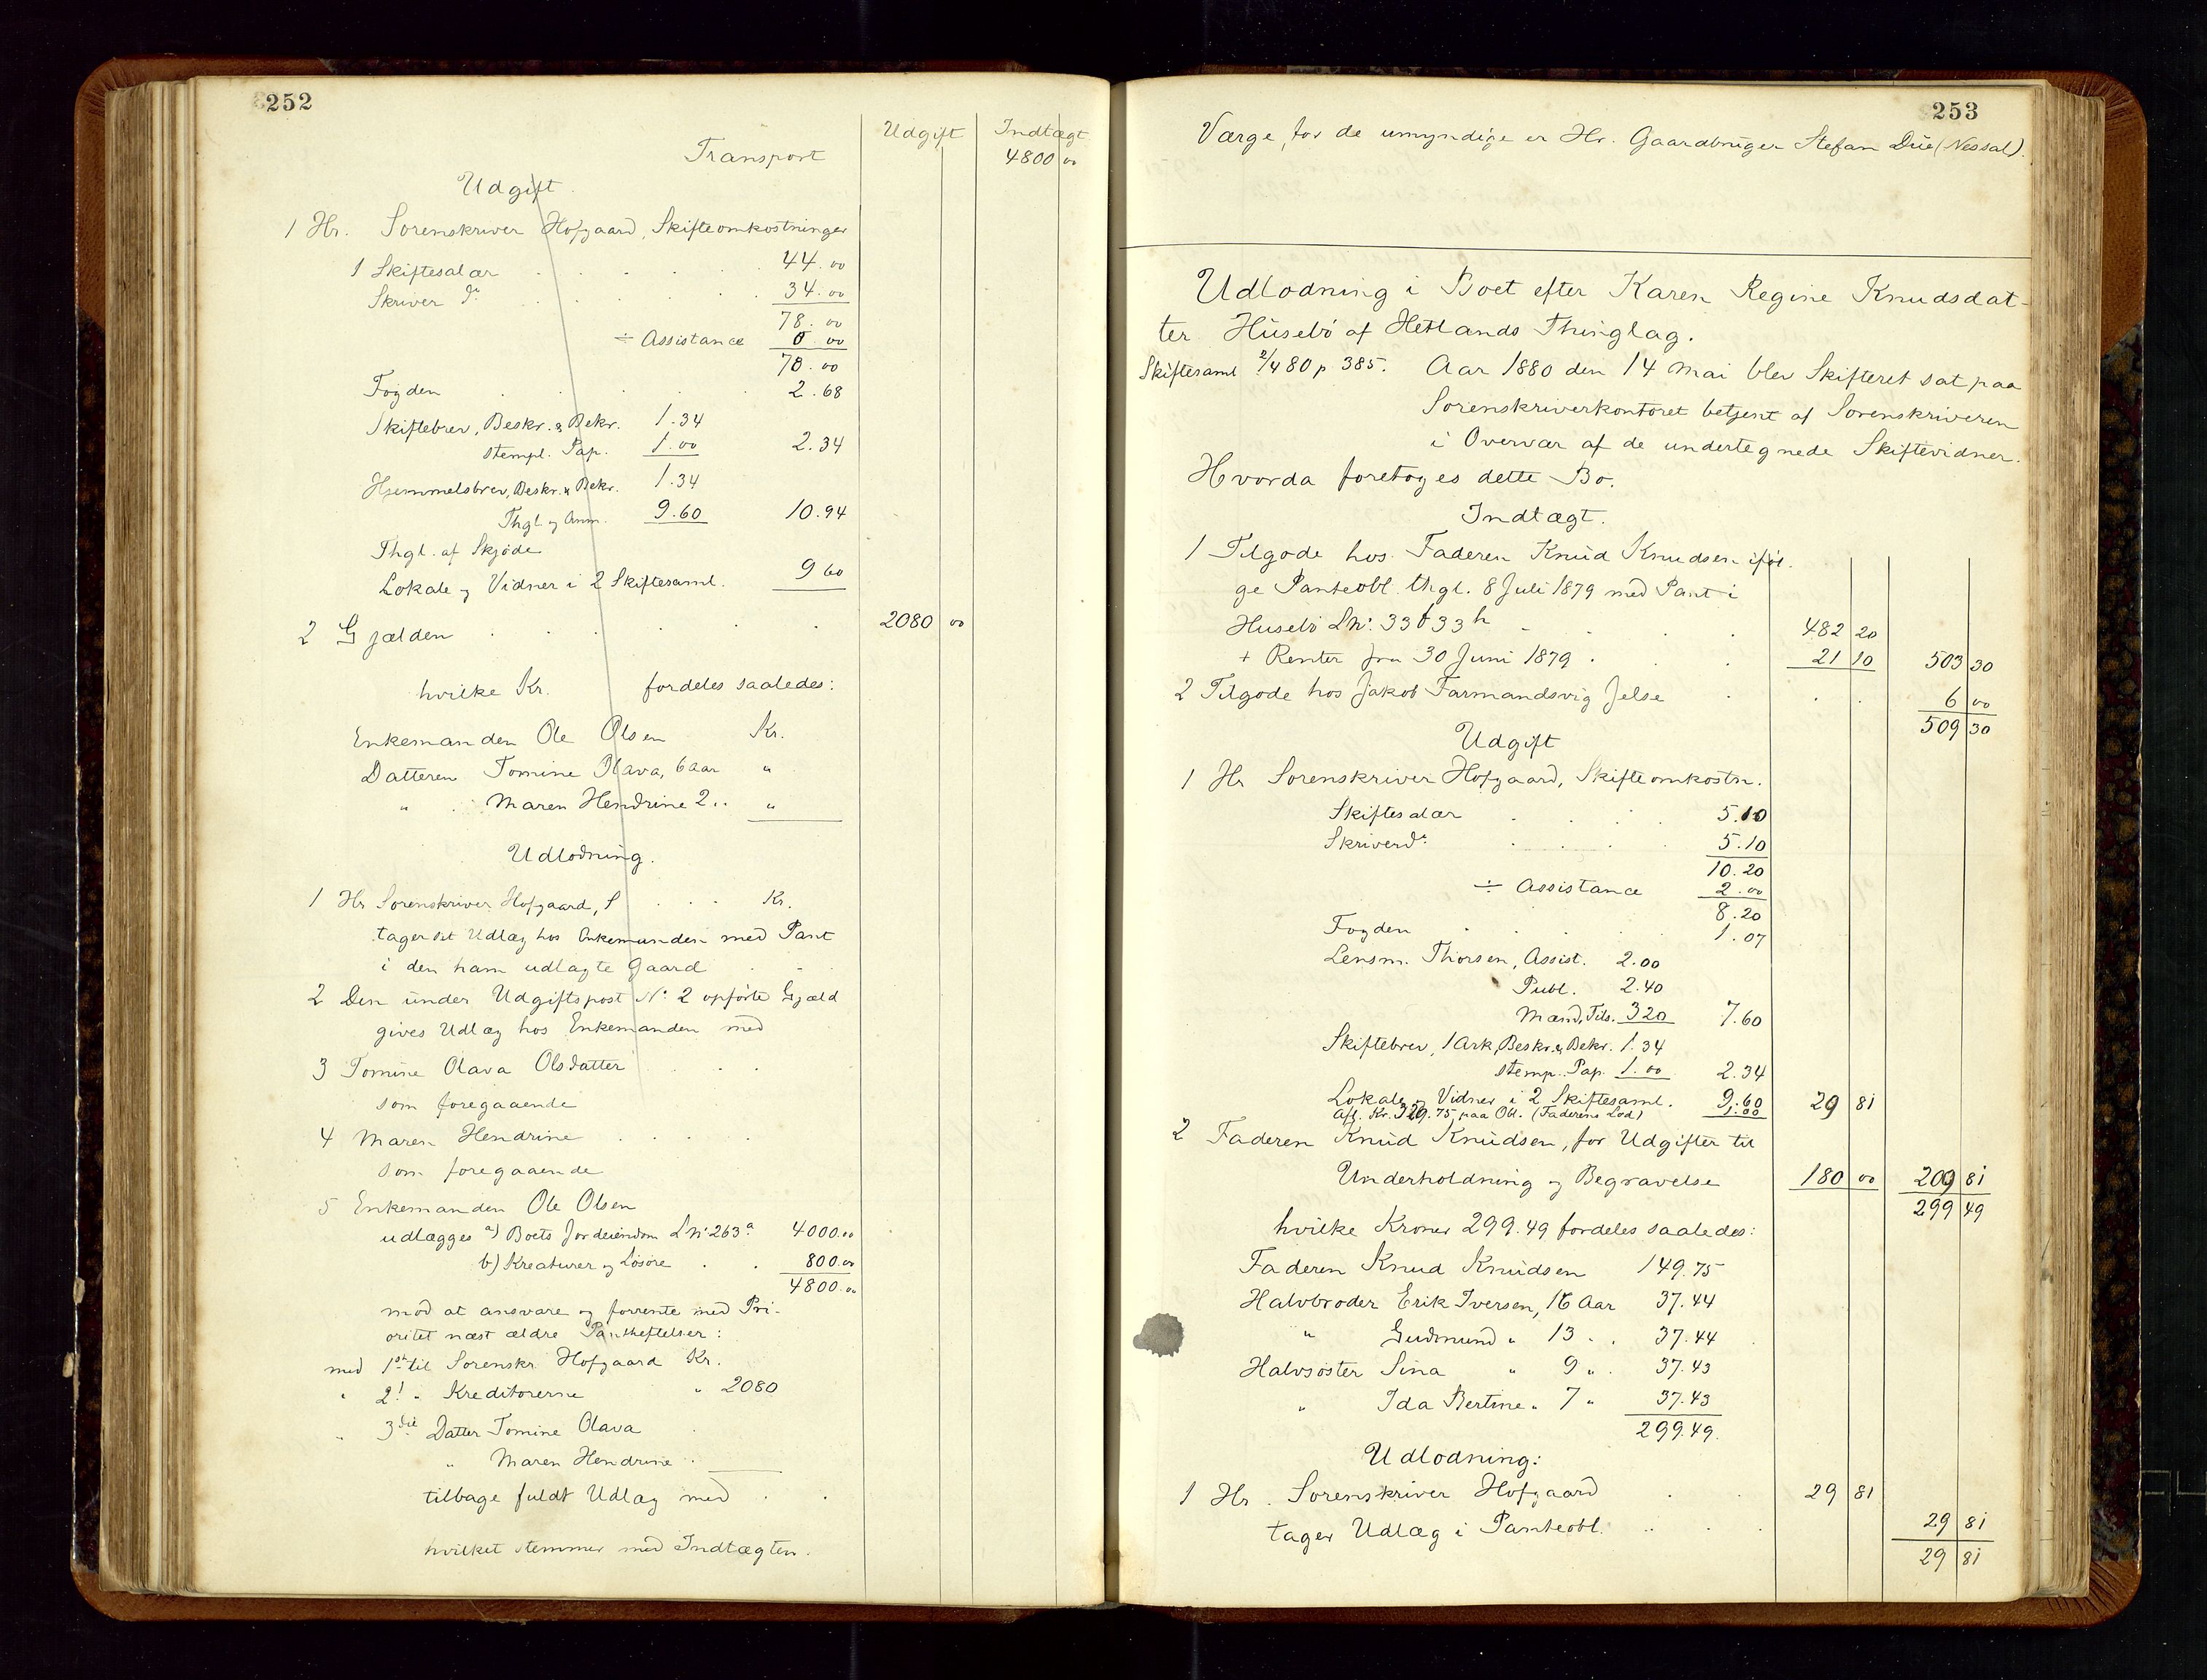 252
Udgift Indtægt
Transport 4800 00
Udgift.
1 Hr. Sorenskriver Hofgaard, Skifteomkostninger
1 Skiftesalær 44.00
Skriver do 34.00
78.00
÷ Assistance 8.00
70.00
Fogden 2.68
Skiftebrev, Beskr. & Bekr. 1.34
stempl. Pap. 1.00 2.34
Hjemmelsbrev, Beskr. & Bekr. 1.34
Thgl. og Anm. 9.60 10.94
Thgl. af Skjöde
Lokale og Vidner i 2 Skiftesaml. 9 60
2 Gjælden 2080 00
hvilke Kr. fordeles saaledes:
Enkemanden Ole Olsen Kr.
Datteren Tomine Olava, 6 aar "
" Maren Hendrine 2 " "
Udlodning.
1 Hr Sorenskriver Hofgaard, S Kr.
tager sit Udlæg hos Enkemanden med Pant
i den ham udlagte Gaard
2 Den under Udgiftspost No 2 opförte Gjæld
gives Udlæg hos Enkemanden med
3 Tomine Olava Olsdatter
som foregaaende
4 Maren Hendrine
som foregaaende
5 Enkemanden Ole Olsen
udlægges a) Boets Jordeiendom LNo 263a 4000.00
b) Kreaturer og Lösöre 800.00
4800.00
mod at ansvare og forrente med Pri-
oritet næst ældre Pantheftelser:
med 1ste til Sorenskr. Hofgaard Kr.
" 2! " Kreditorerne " 2080
" 3die Datter Tomine Olava
" Maren Hendrine
tilbage fuldt Udlæg med
hvilket stemmer med Indtægten.
253
Værge for de umyndige er Hr. Gaardbruger Stefan Due (Nessal).
Udlodning i Boet efter Karen Regine Knudsdat-
ter Husebö af Hetlands Thinglag.
Skiftesaml 2/4 80 p 385. Aar 1880 den 14 Mai blev Skifteret sat paa
Sorenskriverkontoret betjent af Sorenskriveren
i Overvær af de undertegnede Skiftevidner.
Hvorda foretoges dette Bo.
Indtægt.
1 Tilgode hos Faderen Knud Knudsen iföl-
ge Panteobl. thgl. 8 Juli 1879 med Pant i
Husebö LNo. 33 f 33 h 482 20
+ Renter fra 30 Juni 1879 21 10 503 30
2 Tilgode hos Jakob Farmandsvig Jelse 6 00
509 30
Udgift
1 Hr Sorenskriver Hofgaard, Skifteomkostn.
Skiftesalær 5.10
Skriverdo 5.10
10.20
÷ Assistance 2.00
8.20
Fogden 1.07
Lensm. Thorsen, Assist. 2.00
Publ. 2.40
Mænd, Tils. 320 7.60
Skiftebrev, 1 Ark, Beskr. & Bekr. 1.34
stemp. Pap. 1.00 2.34
Lokale og Vidner i 2 Skiftesaml. 9.60 29 81
Afl. Kr. 329.75 paa Obl. (Faderens Lod) 1.00
2 Faderen Knud Knudsen, for Udgifter til
Underholdning og Begravelse 180 00 209 81
299 49
hvilke Kroner 299.49 fordeles saaledes:
Faderen Knud Knudsen 149.75
Halvbroder Erik Iversen, 16 Aar 37.44
" Gudmund " 13 " 37.44
Halvsöster Sina " 9 " 37.43
" Ida Bertine " 7 " 37.43
299.49.
Udlodning:
1 Hr. Sorenskriver Hofgaard 29 81
tager Udlæg i Panteobl. 29 81
29 81